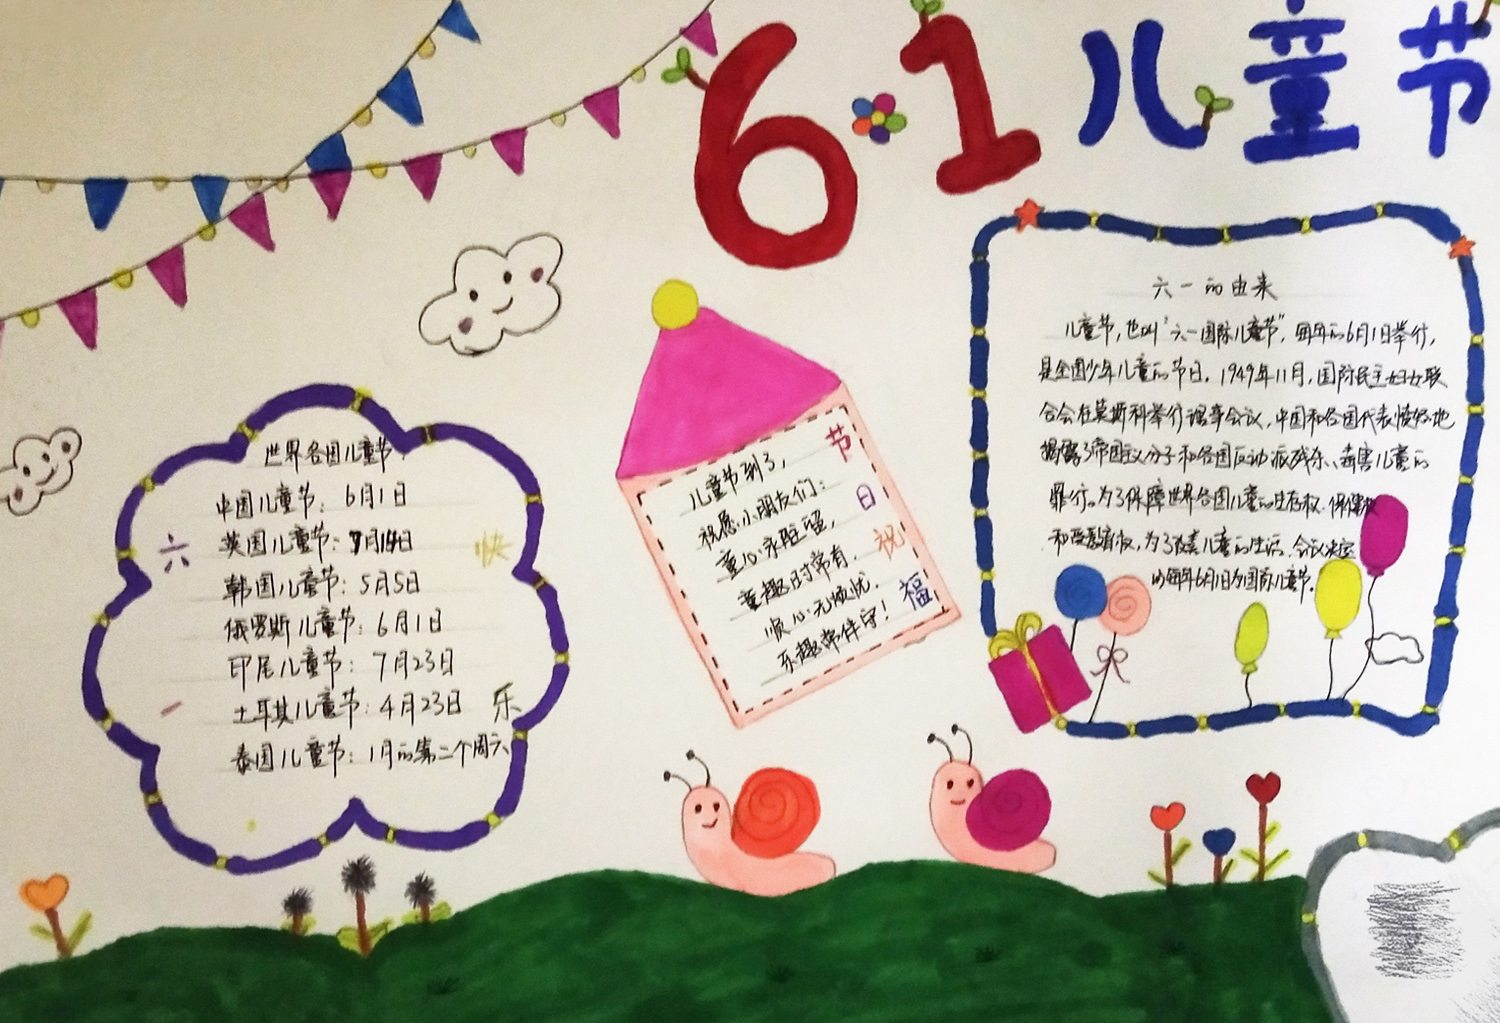 6·1 儿童节
世界各国儿童节
中国儿童节：6月1日
英国儿童节：7月14日
韩国儿童节：5月5日
俄罗斯儿童节：6月1日
印尼儿童节：7月23日
土耳其儿童节：4月23日
泰国儿童节：1月的第二个周六
六
一
快
乐
儿童节到了，
祝愿小朋友们：
童心永驻留，
童趣时常有，
顺心无烦忧，
乐趣常伴守！
节
日
祝
福
六一的由来
儿童节，也叫"六一国际儿童节"，每年的6月1日举行，
是全国少年儿童的节日。1949年11月，国际民主妇女联
合会在莫斯科举行理事会议，中国和各国代表愤怒地
揭露了帝国主义分子和各国反动派残杀、毒害儿童的
罪行。为了保障世界各国儿童的生存权、保健权
和受教育权，为了改善儿童的生活，会议决定
的每年6月1日为国际儿童节。